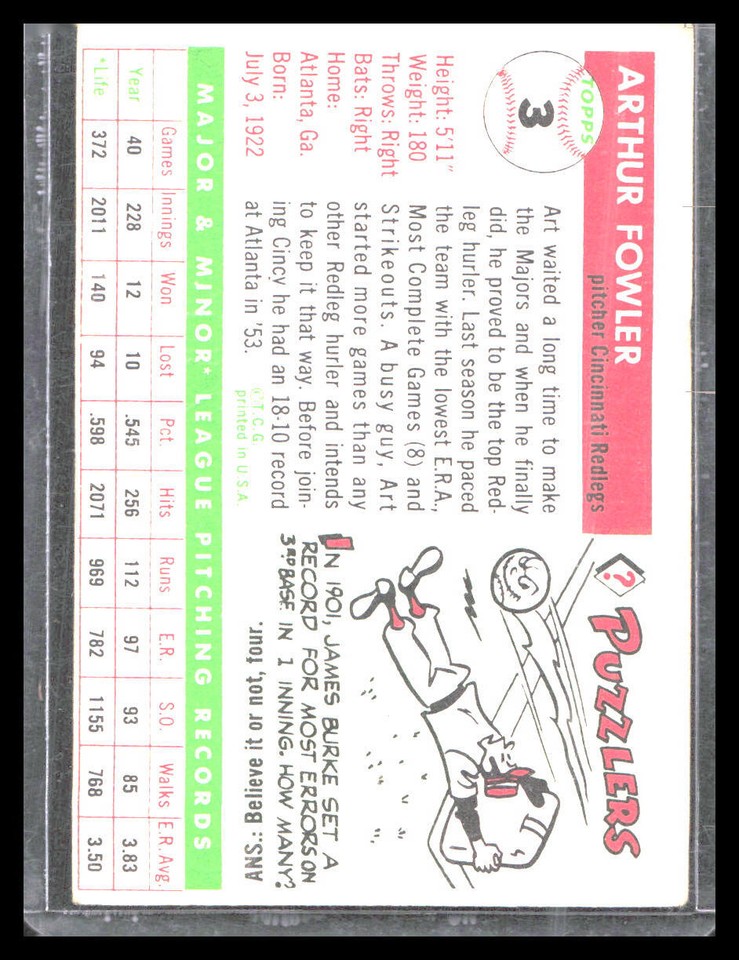 TOPPS
3
ARTHUR FOWLER
pitcher Cincinnati Redlegs
Height: 5'11"
Weight: 180
Throws: Right
Bats: Right
Home:
Atlanta, Ga.
Born:
July 3, 1922
Art waited a long time to make
the Majors and when he finally
did, he proved to be the top Red-
leg hurler. Last season he paced
the team with the lowest E.R.A.,
Most Complete Games (8) and
Strikeouts. A busy guy, Art
started more games than any
other Redleg hurler and intends
to keep it that way. Before join-
ing Cincy he had an 18-10 record
at Atlanta in '53.
©T.C.G
printed in U.S.A.
?
PUZZLERS
IN 1901, JAMES BURKE SET A
RECORD FOR MOST ERRORS ON
3RD BASE IN 1 INNING. HOW MANY?
ANS.: Believe it or not, four.
MAJOR & MINOR* LEAGUE PITCHING RECORDS
Games Innings Won Lost Pct. Hits Runs E.R. S.O. Walks E.R. Avg.
Year 40 228 12 10 .545 256 112 97 93 85 3.83
*Life 372 2011 140 94 .598 2071 969 782 1155 768 3.50